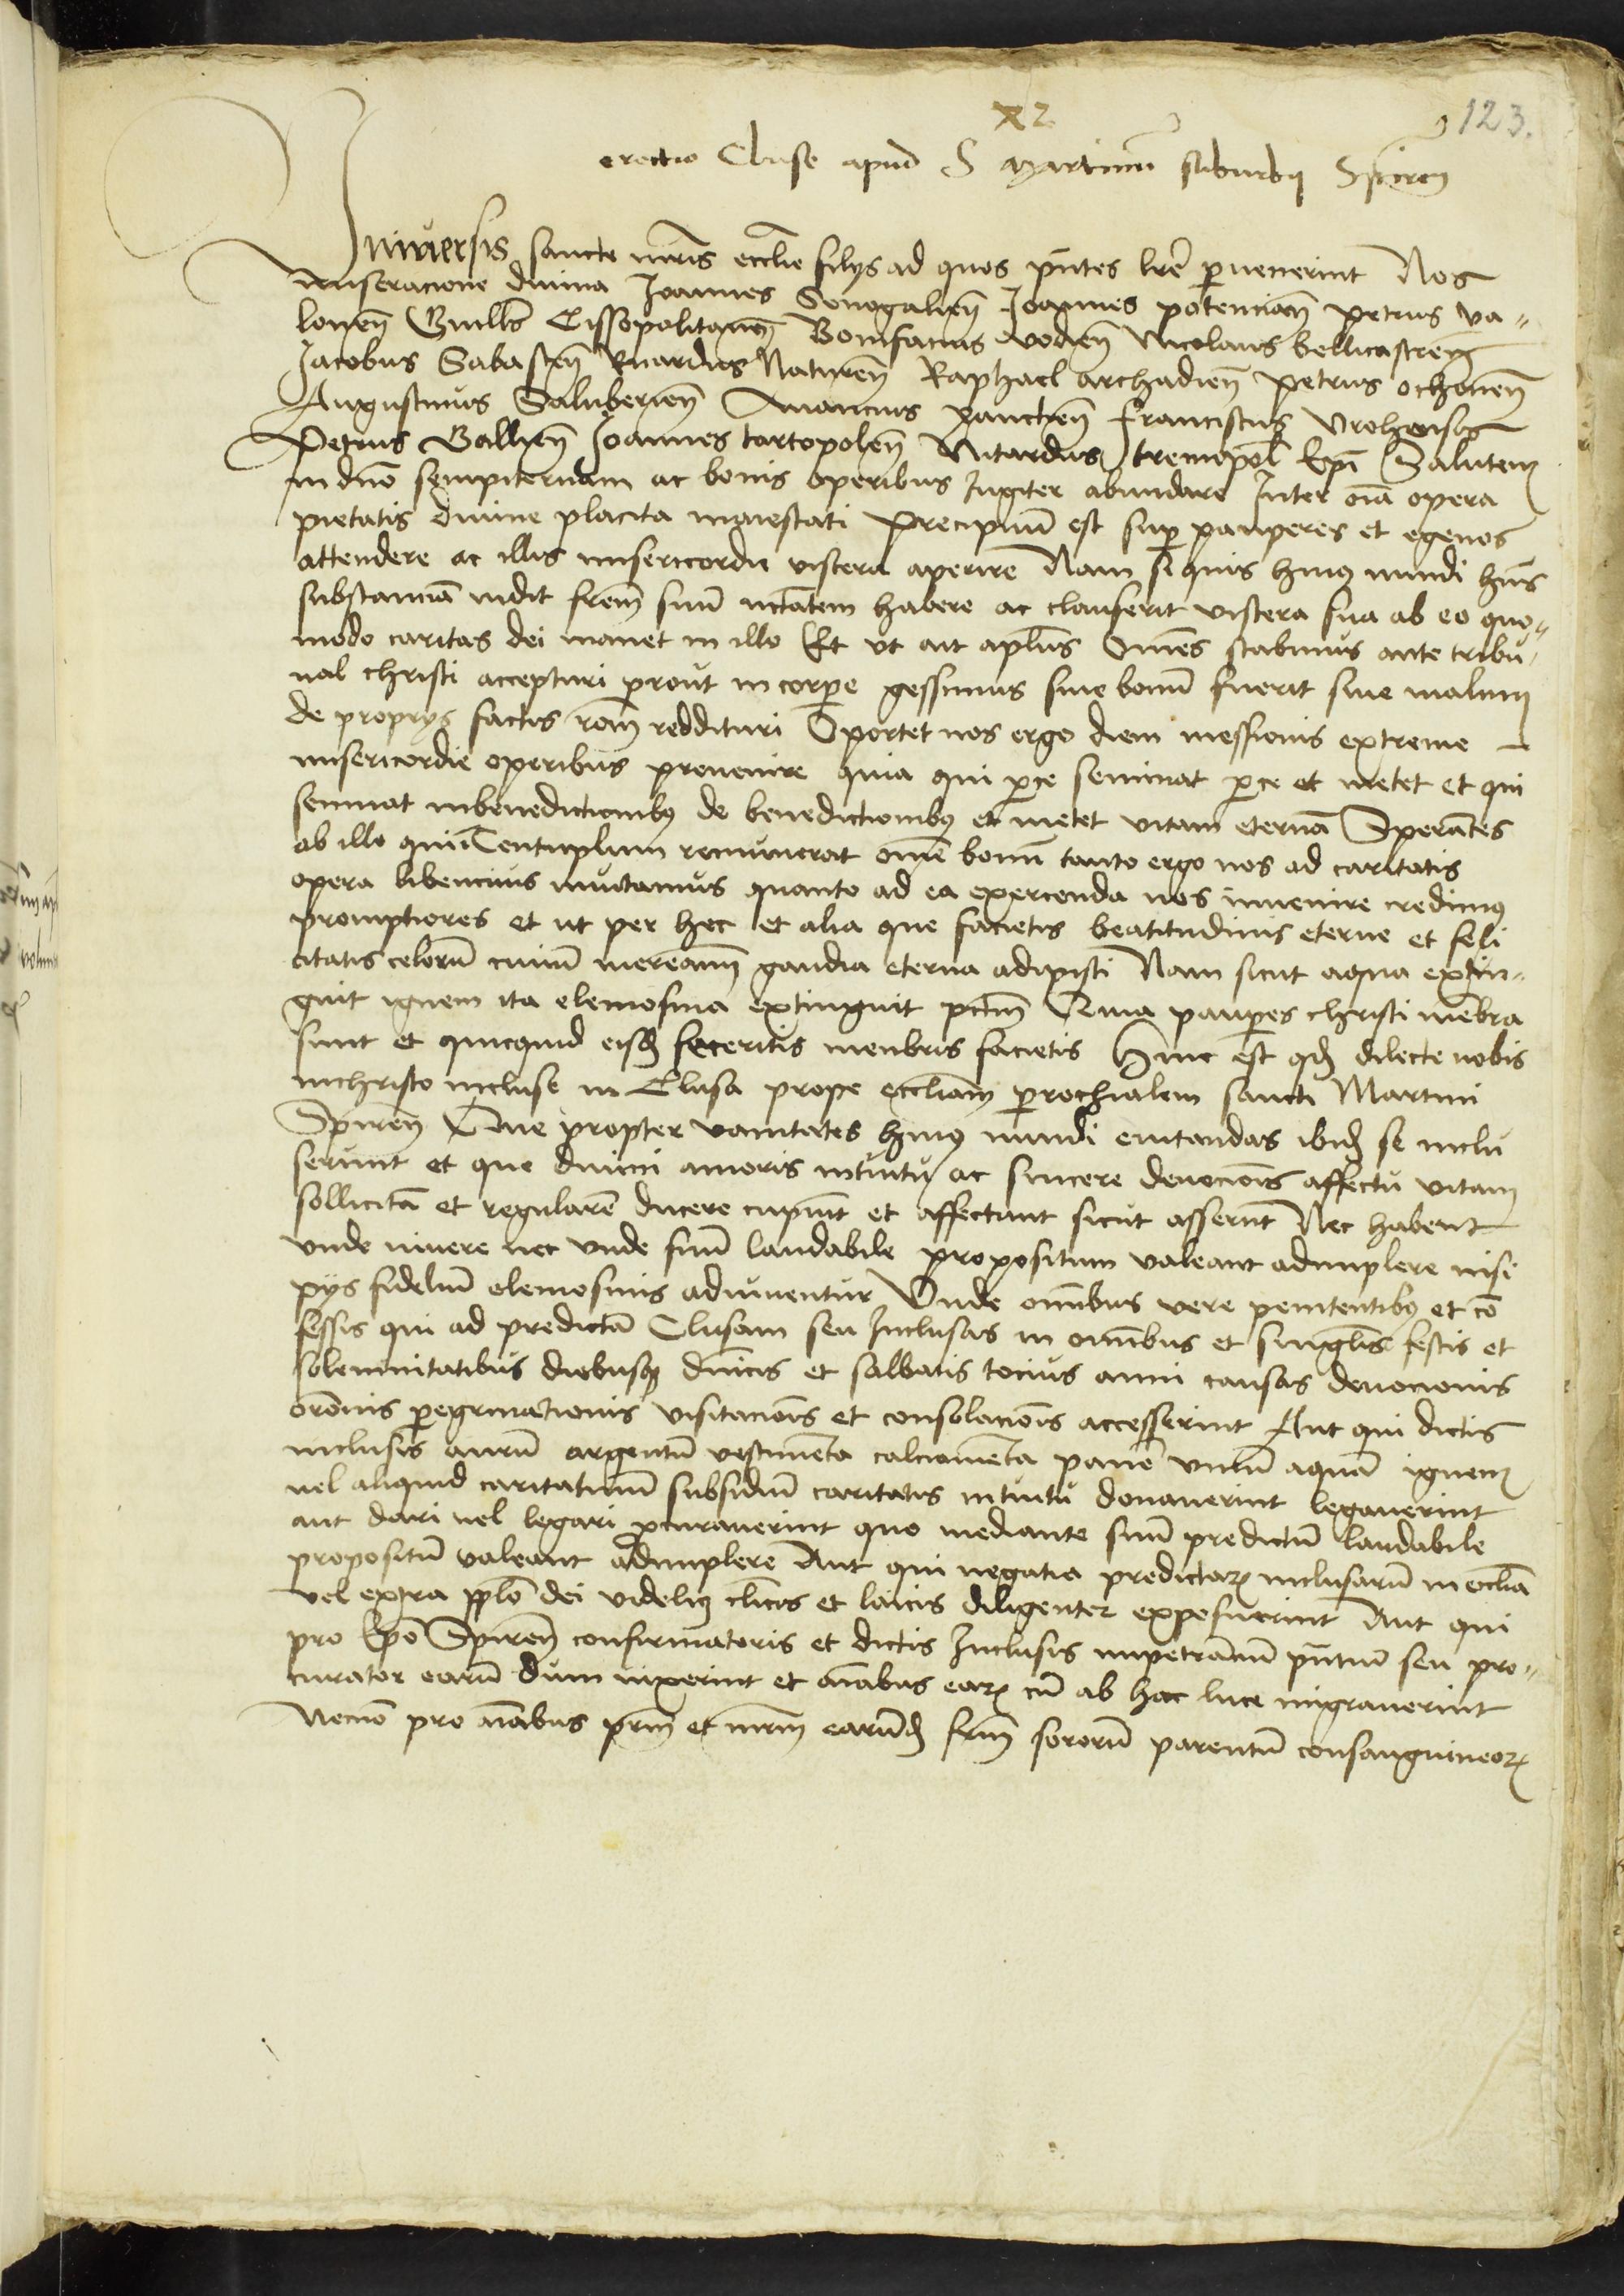 123.
erectio Cluse apud S Martinum suburbij Spiren
Universis sancte mris ecclie filijs ad quos pntes lre pervenerint Nos
miseracione divina Joannes Senogalien Joannes potencian Petrus va„
lonen Guillus Cissopolitanen Bonifacius vodien Nicolaus bellicastren
Jacobus Sabasten Ruardus Naturen Raphael archadien Petrus ochonen
Augustinus Saluberien Avancius xancten Franciscus Vrohensis
Petrus Gallien Joannes tartopolen Nitardus tremopol Epi Salutem
in dno sempiternam ac bonis operibus Jugiter abundare Inter oia opera
pietatis divine placita maiestati Precipuum est sup pauperes et egenos
attendere ac illis misericordie viscera aperire Nam siquis huius mundi huius
substanciam vidit frem suum nctatem habere ac clauserit viscera sua ab eo quo„
modo caritas dei manet in illo Et vt ait aplus Omnes stabimus ante tribu„
nal christi accepturi prout in corpe gessimus sive bonum fuerit sive malum
de proprijs factis rom reddituri Oportet nos ergo diem messionis extreme
misericordie operibus prevenire quia qui pce seminat pce et metet et qui
seminat in benedictionibus de benedictionibus et metet vitam eternam Sperantes
ab illo qui Centuplum remunerat omne bonum tanto ergo nos ad caritatis
opera libencius invitamus quanto ad ea exercenda nos invenire credimus
promptiores et ut per hec et alia que facietis beatitudinis eterne et feli
citatis celorum civium mereamini gaudia eterna adipisci Nam sicut aqua extin„
guit ignem ita elemosina extinguit pctm Quia paupes christi membra
sunt et quicquid eisdem feceritis menbris facietis Hinc est qd dilecte nobis
in christo incluse in Clusa prope eccliam parochialem sancti Martini
Spiren Que propter vanitates huius mundi evitandas ibidem se inclu
serunt et que divini amoris intuitu ac sincere devocionis affectu vitam
sollicitam et regularem ducere cupiunt et affectant sicut asserunt Nec habent
vnde vivere nec vnde suum laudabile propositum valeant adimplere nisi
pijs fidelium elemosinis adiuventur Vnde omnibus vere penitentibus et co
fessis qui ad predictam Clusam seu Inclusas in omnibus et singulis festis et
solemnitatibus diebusque dnicis et salbatis tocius anni causas devocionis
oronis peregrinationis visitacionis et consolacionis accesserint Aut qui dictis
inclusis aurum argentum vestimenta calciamenta panem vinum aquam ignem
vel aliquid caritativum subsidium caritatis intuitu donaverint legaverint
aut dari vel legari pcuraverint quo mediante suum predictum laudabile
propositum valeant adimplere Aut qui negotia predictarum inclusarum in ecclia
vel extra pplo dei videlicet clicis et laicis diligenter exposuerint Aut qui
pro Epo Spiren confirmatoris et dictis Inclusis impetrancium pntium seu pro„
curator earum dum vixerint et aiabus earum cum ab hac luce migraverint
Necno pro aiabus prm et mrm earundem frm sororum parentum consanguineorum